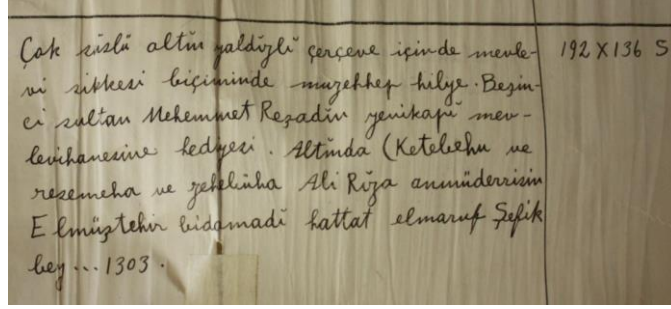 Çok süslü altin yaldizli çerçeve içinde mevle- 192 X 136 S
vi sikkesi biçiminde müzehhep hilye. Beşin-
ci sultan Mehemmet Reşadin yenikapi mev-
levihanesine hediyesi. Altinda (Ketebehu ve
resemeha ve zehebuha Ali Riza anmüderrisin
Elmüştehir bidamadi hattat elmaruf Şefik
bey ... 1303.